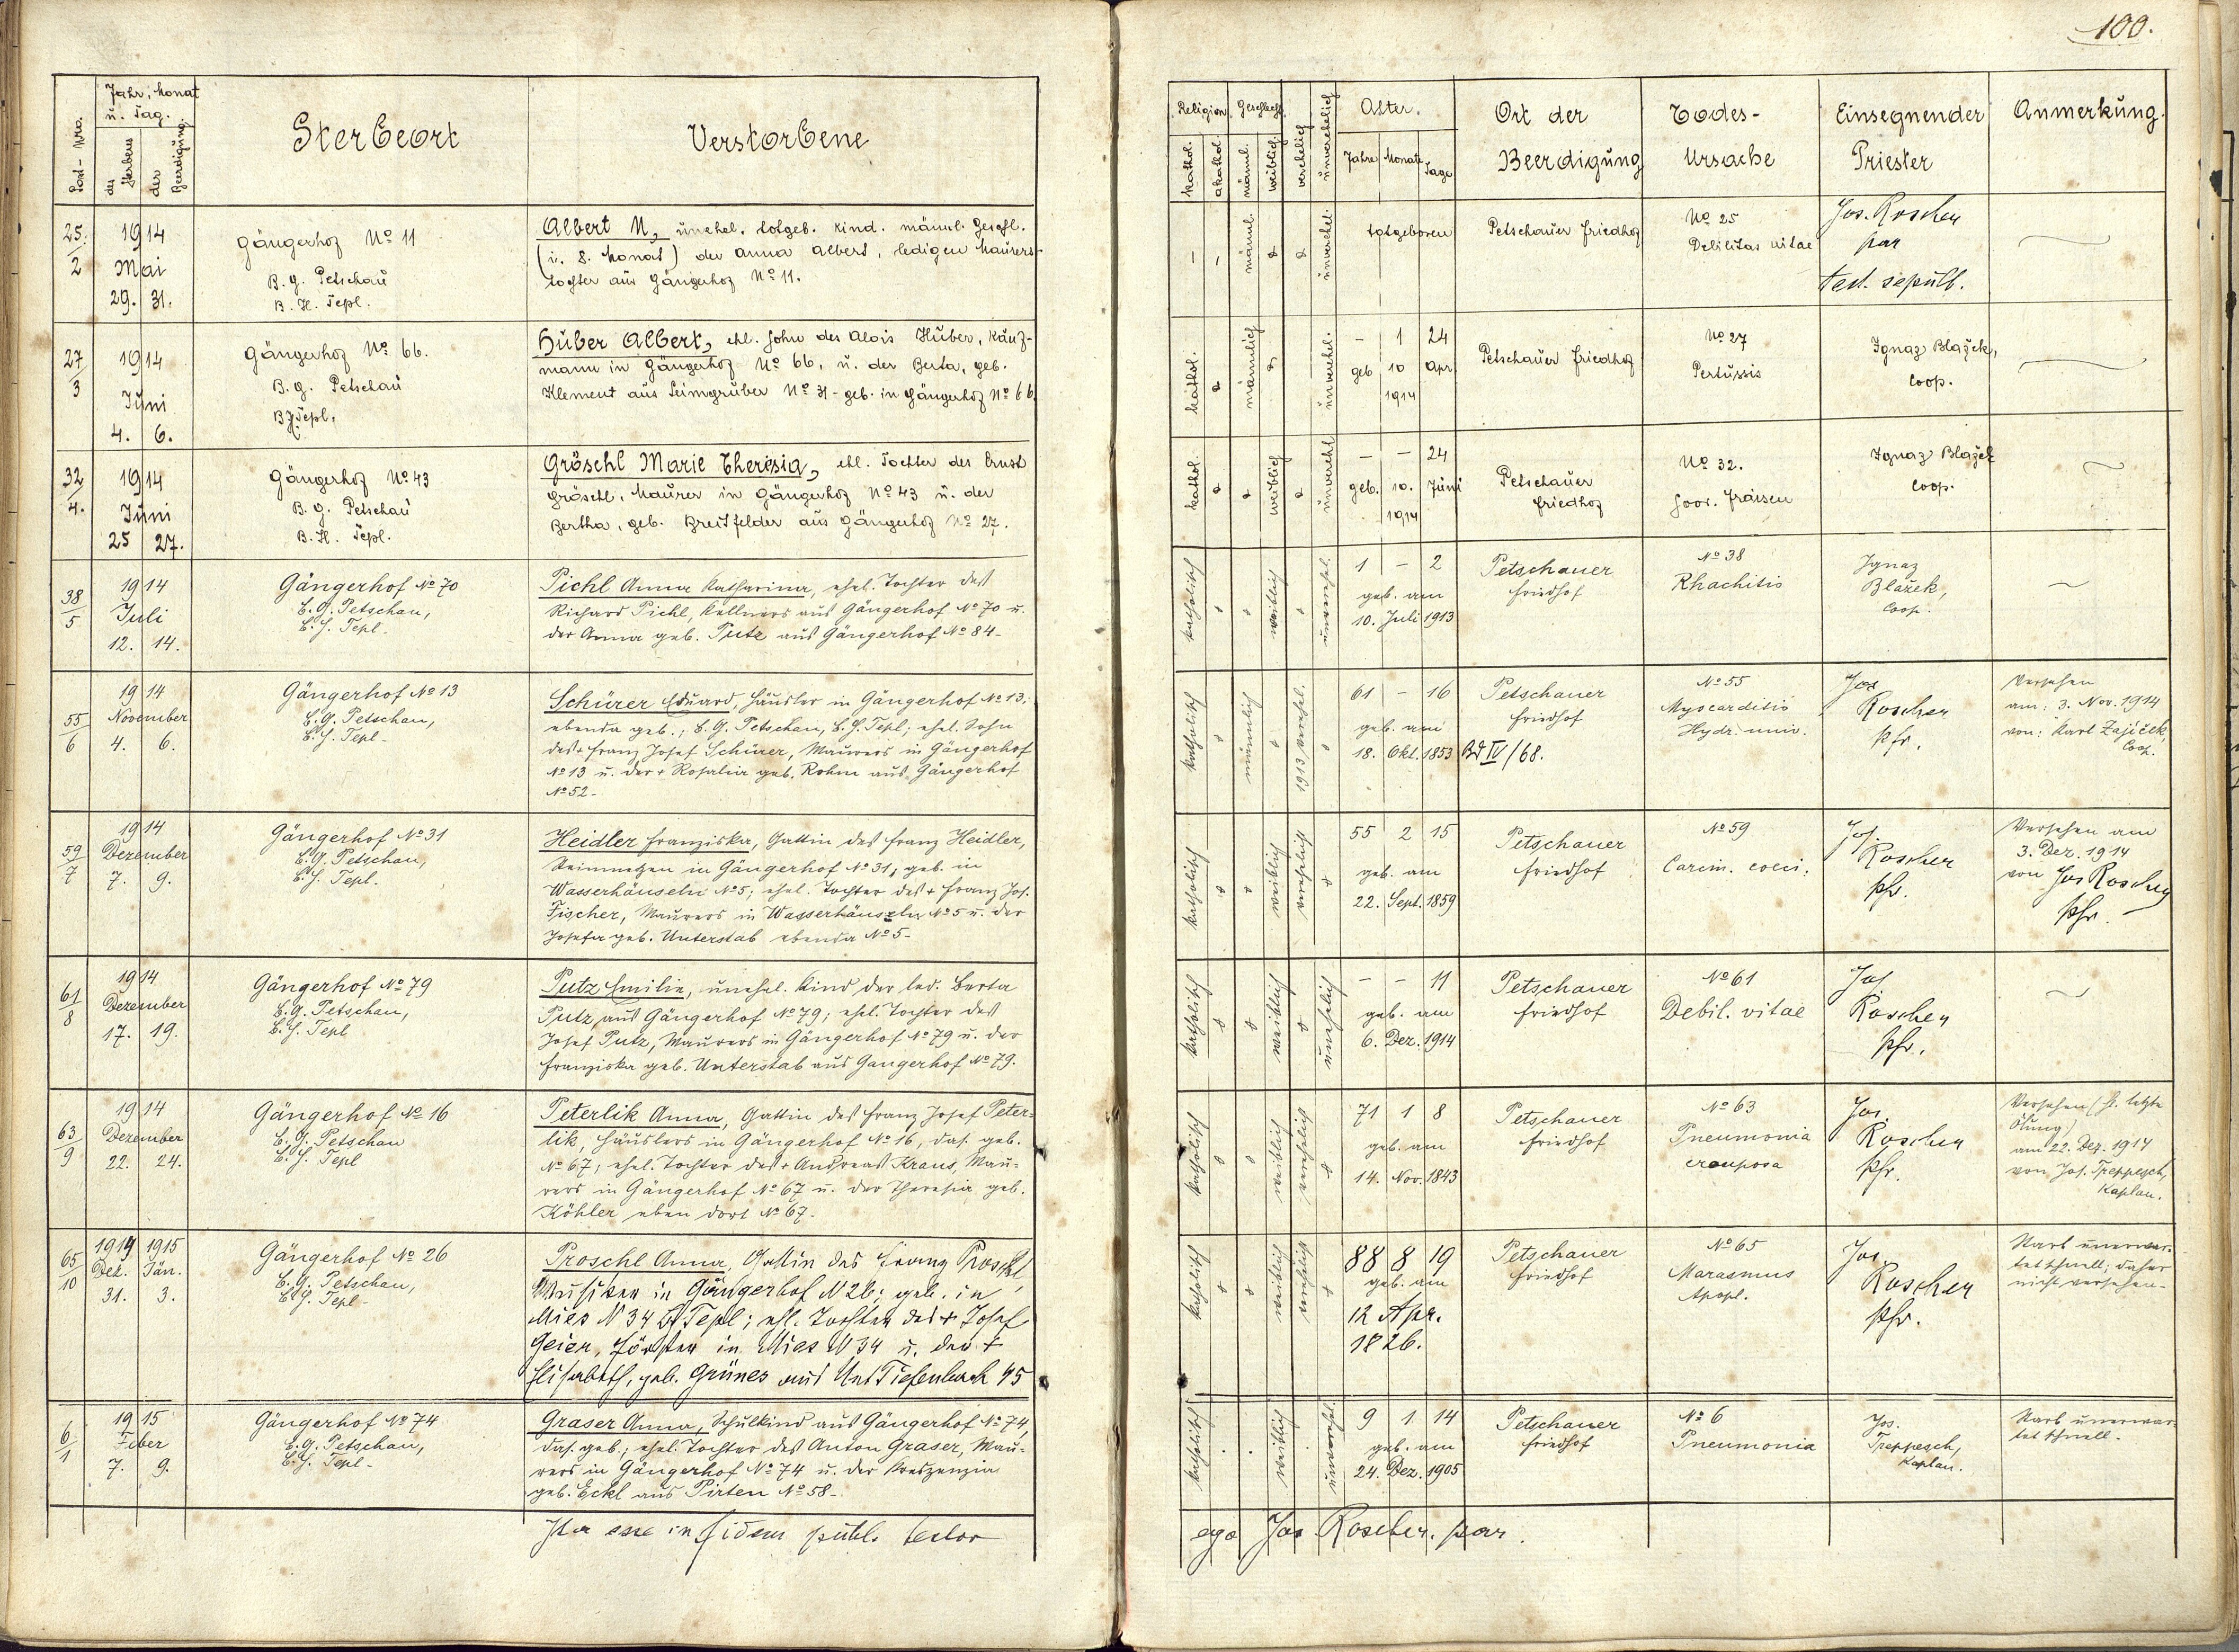 100.
Fort- Nro.
Jahr, Monat
u. Tag.
des Sterbens
der Beerdigung.
Sterbeort
Verstorbene
Religion
Geschlecht
kathol.
akathol.
männl.
weiblich
verehelich
unverehelich
Alter.
Jahre
Monate
Tage
Ort der
Beerdigung
Todes-
Ursache
Einsegnender
Priester
Anmerkung.
25.
2
1914
Mai
29. 31.
Gängerhof No 11
B. G. Petschau
B. H. Tepl.
Albert N, unehel. totgeb. Kind. männl. Geschl.
(i. 8. Monat) der Anna Albert, ledigen Maurers-
tochter aus Gängerhof No 11.
männl.
unverehel.
totgeboren
Petschauer Friedhof
No 25
Debilitas vitae
Jos. Roscher
par
test. sepult.
27
3
1914
Juni
4. 6.
Gängerhof No 66.
B. G. Petschau
B H Tepl.
Huber Albert, ehl. Sohn des Alois Huber, Kauf-
mann in Gängerhof No 66, u. der Berta, geb.
Klement aus Leimgruber No 31 - geb. in Gängerhof No 66
kathol.
männlich
unverehel.
- 1 24
geb 10 Apr
1914
Petschauer Friedhof
No 27
Pertussis
Ignaz Blažek,
Coop.
32
4.
1914
Juni
25 27.
Gängerhof No 43
B. G. Petschau
B. H. Tepl.
Gröschl Marie Theresia, ehl. Tochter des Ernst
Gröschl, Maurer in Gängerhof No 43 u. der
Bertha, geb. Breitfelder aus Gängerhof No 27.
kathol.
weiblich
unverehl
- - 24
geb. 10. Juni
1914
Petschauer
Friedhof
No 32.
Soor. Fraisen
Ignaz Blažek
Coop.
38
5
1914
Juli
12. 14.
Gängerhof No 70
B. G. Petschau,
B. H. Tepl.
Pichl Anna Katharina, ehel. Tochter des
Richard Pichl, Kellners aus Gängerhof No 70 u.
der Anna geb. Putz aus Gängerhof No 84-
katholisch
weiblich
unverehel.
1 - 2
geb. am
10. Juli 1913
Petschauer
Friedhof
No 38
Rhachitis
Ignaz
Blažek,
Coop.
55
6
1914
November
4. 6.
Gängerhof No 13
B. G. Petschau,
B. H. Tepl-
Schürer Eduard, Häusler in Gängerhof No 13;
ebenda geb.; B. G. Petschau, B. H. Tepl; ehel. Sohn
des + Franz Josef Schürer, Maurers in Gängerhof
No 13 u. der + Rosalia geb. Rohm aus Gängerhof
No 52-
katholisch
männlich
1913 verehel.
61 - 16
geb. am
18. Okt. 1853
Petschauer
Friedhof
Bd IV/68.
No 55
Myocarditis
Hydr. univ.
Jos
Roscher
Pfr.
Versehen
am: 3. Nov. 1914
von: Karl Zajíček,
Coop.
59
7
1914
Dezember
7. 9.
Gängerhof No 31
B. G. Petschau,
B. H. Tepl.
Heidler Franziska, Gattin des Franz Heidler,
Steinmetzen in Gängerhof No 31, geb. in
Wasserhäuseln No 5; ehel. Tochter des + Franz Jos.
Fischer, Maurers in Wasserhäuseln No 5 u. der
Josefa geb. Unterstab ebenda No 5-
katholisch
weiblich
verehelicht
55 2 15
geb. am
22. Sept. 1859
Petschauer
Friedhof
No 59
Carcin. coeci.
Jos.
Roscher
Pfr.
Versehen am
3. Dez. 1914
von Jos Roscher
Pfr.
61
8
1914
Dezember
17. 19.
Gängerhof No 79
B. G. Petschau,
B. H. Tepl
Putz Emilie, unehel. Kind der led. Berta
Putz, aus Gängerhof No 79; ehel. Tochter des
Josef Putz, Maurers in Gängerhof No 79 u. der
Franziska geb. Unterstab aus Gängerhof No 79.
katholisch
weiblich
unehelich
- - 11
geb. am
6. Dez. 1914
Petschauer
Friedhof
No 61
Debil. vitae
Jos
Roscher
Pfr.
63
9
1914
Dezember
22. 24.
Gängerhof No 16
B. G. Petschau
B. H. Tepl
Peterlik Anna, Gattin des Franz Josef Peter-
lik, Häuslers in Gängerhof No 16, das. geb.
No 67, ehel. Tochter des + Andreas Kraus, Mau-
rers in Gängerhof No 67 u. der Theresia geb.
Köhler eben dort No 67.
katholisch
weiblich
verehelich
71 1 8
geb. am
14. Nov. 1843
Petschauer
Friedhof
No 63
Pneumonia
crouposa
Jos.
Roscher
Pfr.
Versehen (h. letzte
Ölung)
am 22. Dez. 1914
von Jos. Treppesch,
Kaplan.
65
10
1914 1915
Dez. Jän.
31. 3.
Gängerhof No 26
B. G. Petschau,
B. H. Tepl-
Proschl Anna, Gattin des Franz Proschl,
Musiker in Gängerhof N 26; geb. in
Mies N 34 Tepl; ehl. Tochter des + Josef
Geier, Förster in Mies N 34 u. der +
Elisabeth, geb. Grünes aus Unt Tiefenbach 45
katholisch
weiblich
verehelicht
88 8 19
geb. am
12 Apr.
1826.
Petschauer
Friedhof
No 65
Marasmus
Apopl.
Jos
Roscher
Pfr.
Starb unerwar-
tet schnell; daher
nicht versehen-
6
1
1915
Feber
7. 9.
Gängerhof No 74
B. G. Petschau,
B. H. Tepl-
Graser Anna, Schulkind aus Gängerhof No 74,
das. geb.; ehel. Tochter des Anton Graser, Mau-
rers in Gängerhof No 74 u. der Kreszenzia
geb. Eckl aus Pirten No 58-
katholisch
weiblich
unverehel.
9 1 14
geb. am
24. Dez. 1905
Petschauer
Friedhof
No 6
Pneumonia
Jos.
Treppesch,
Kaplan.
Starb unerwar-
tet schnell.
Ita esse in fidem publ. testor
ego Jos Roscher. par.